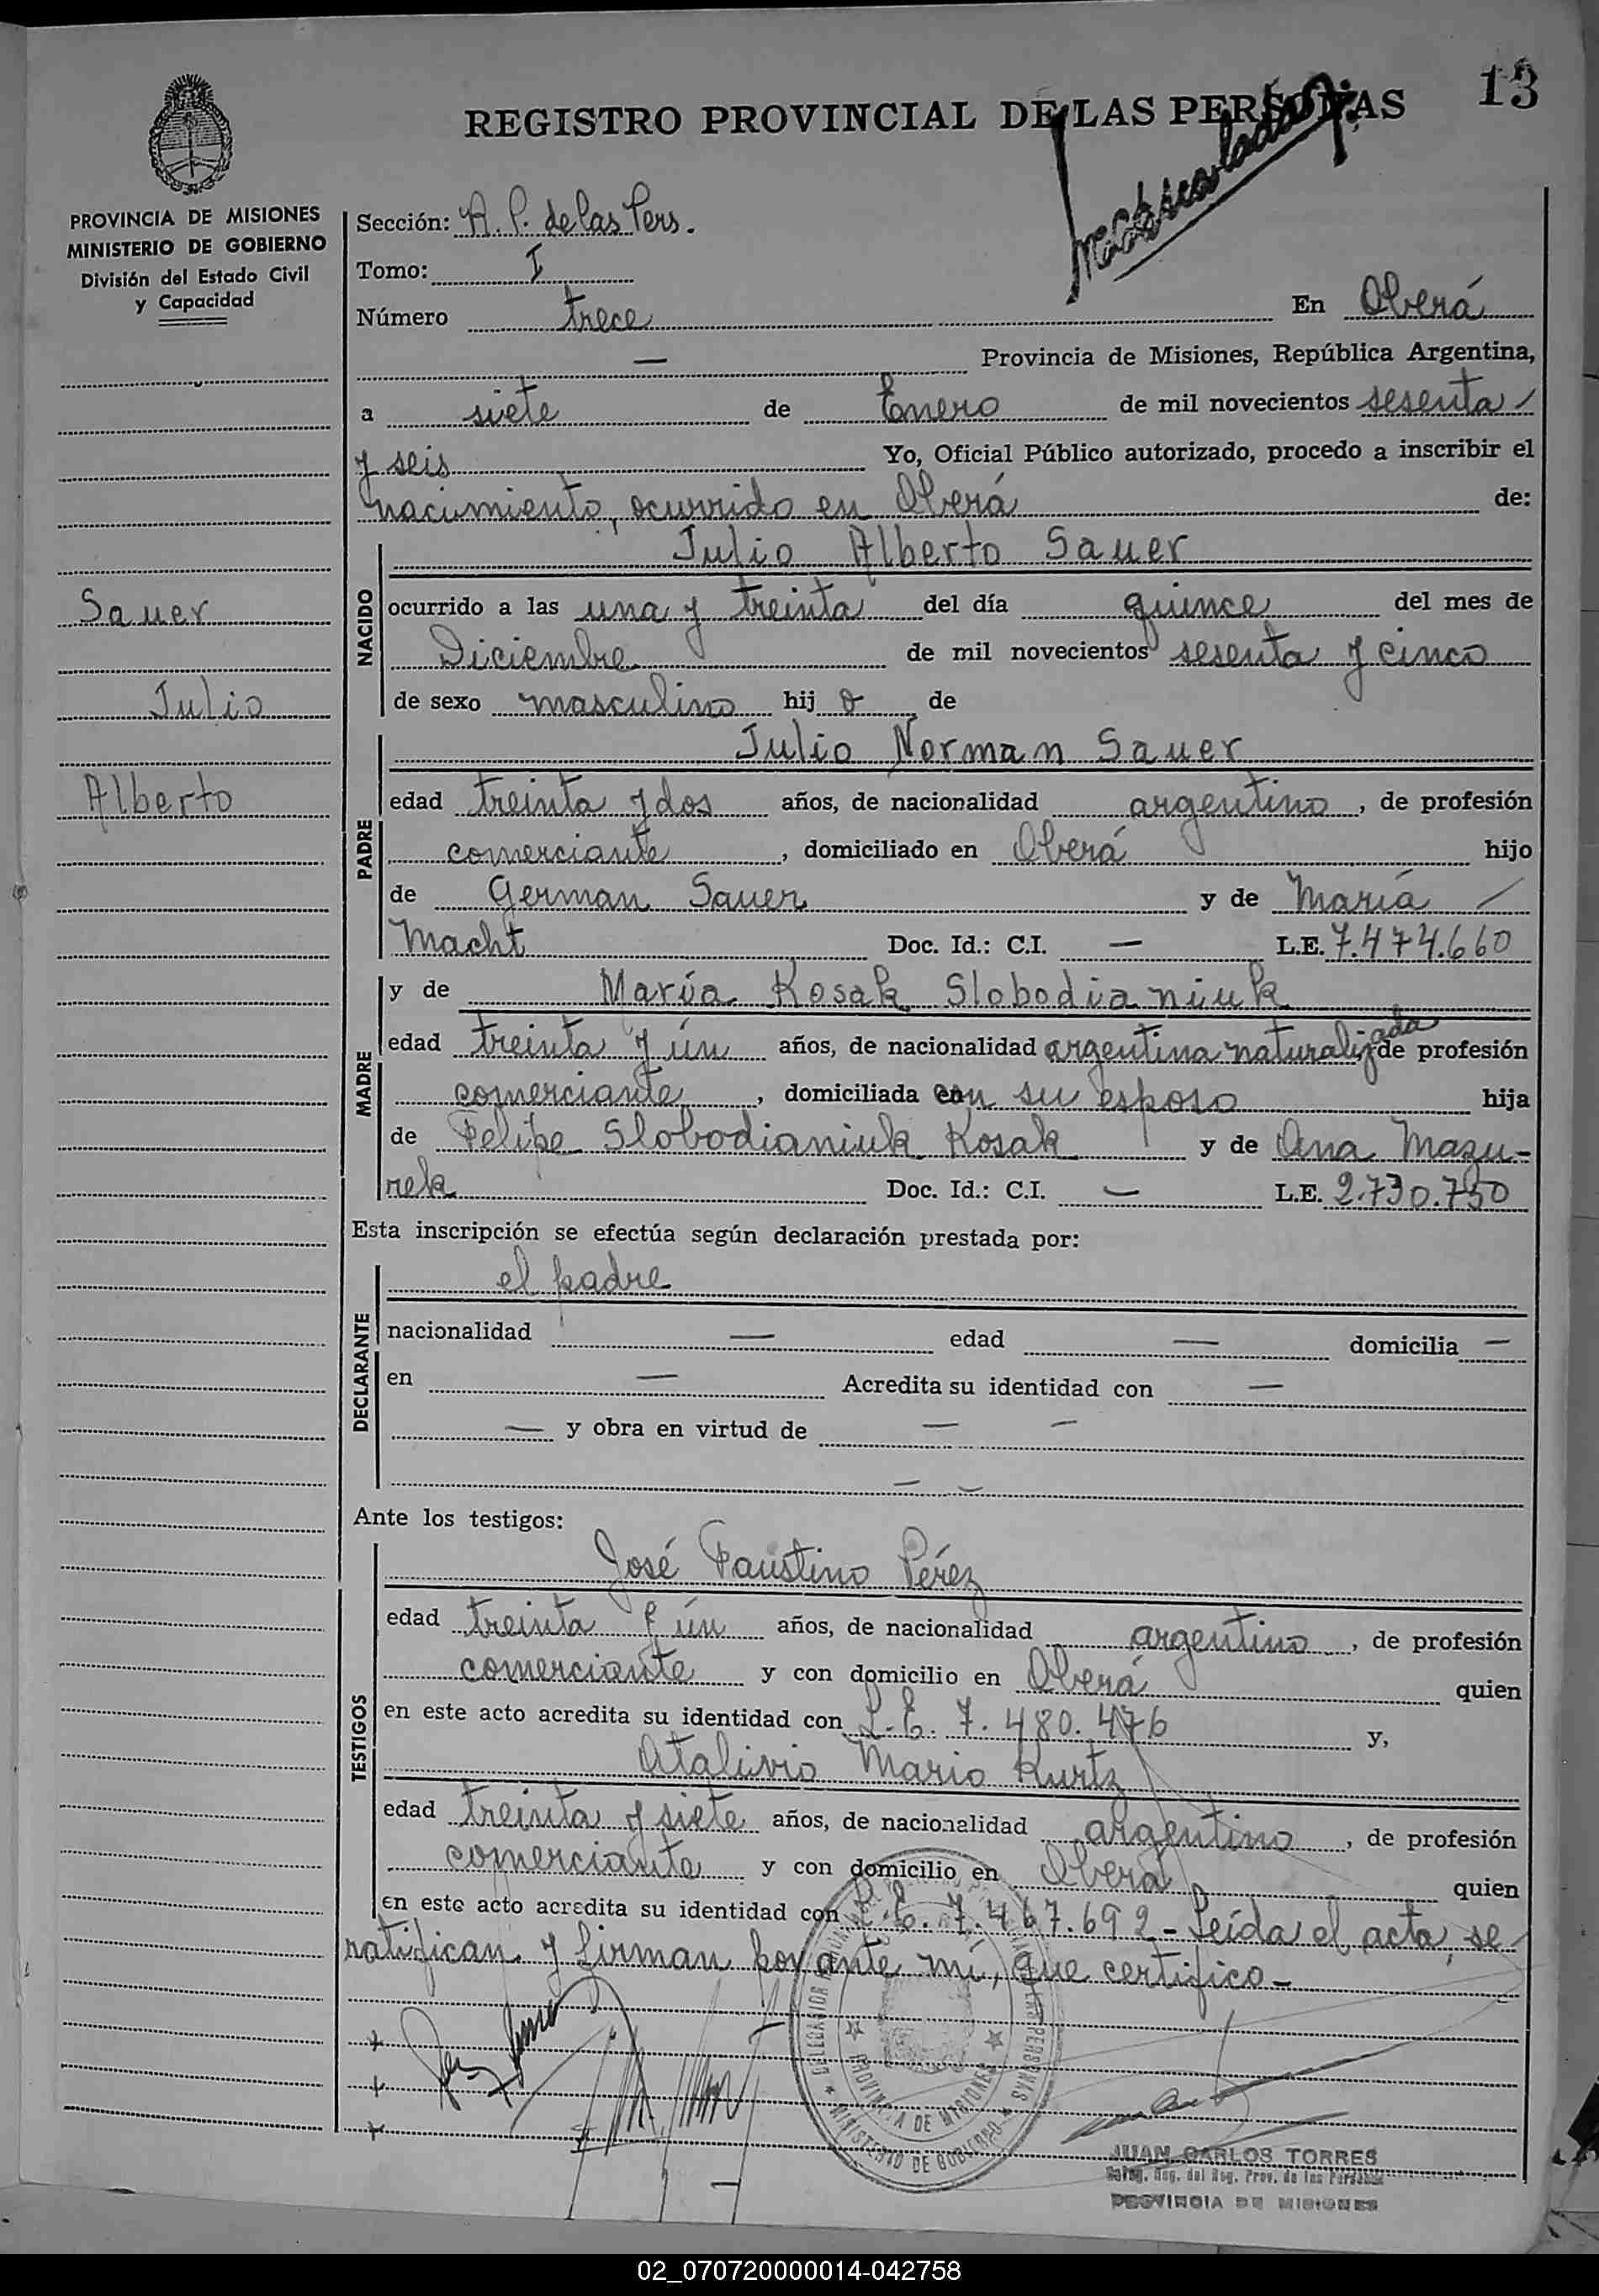 13
REGISTRO PROVINCIAL DE LAS PERSONAS
PROVINCIA DE MISIONES
MINISTERIO DE GOBIERNO
División del Estado Civil
y Capacidad
Sauer
Julio
Alberto
Sección: R. P. de las Pers.
Tomo: I
Número trece En Oberá
— Provincia de Misiones, República Argentina,
a siete de Enero de mil novecientos sesenta
y seis Yo, Oficial Público autorizado, procedo a inscribir el
nacimiento, ocurrido en Oberá de:
NACIDO
Julio Alberto Sauer
ocurrido a las una y treinta del día quince del mes de
Diciembre de mil novecientos sesenta y cinco
de sexo masculino hijo de
PADRE
Julio Norman Sauer
edad treinta y dos años, de nacionalidad argentino, de profesión
comerciante, domiciliado en Oberá hijo
de German Sauer y de María
Macht Doc. Id.: C.I. — L.E. 7.474.660
MADRE
y de María Kosak Slobodianiuk
edad treinta y ún años, de nacionalidad argentina naturalizada de profesión
comerciante, domiciliada con su esposo hija
de Felipe Slobodianiuk Kosak y de Ana Mazu-
rek Doc. Id.: C.I. — L.E. 2.730.750
Esta inscripción se efectúa según declaración prestada por:
DECLARANTE
el padre
nacionalidad — edad — domicilia —
en — Acredita su identidad con —
— y obra en virtud de — —
— —
Ante los testigos:
TESTIGOS
José Faustino Pérez
edad treinta y ún años, de nacionalidad argentino, de profesión
comerciante y con domicilio en Oberá quien
en este acto acredita su identidad con L.E. 7.480.476 y,
Atalivio Mario Kurtz
edad treinta y siete años, de nacionalidad argentino, de profesión
comerciante y con domicilio en Oberá quien
en este acto acredita su identidad con L.E. 7.467.692 - Leída el acta, se
ratifican y firman por ante mí, que certifico -
PROVINCIA DE MISIONES
MINISTERIO DE GOBIERNO
JUAN CARLOS TORRES
PROVINCIA DE MISIONES
02_070720000014-042758